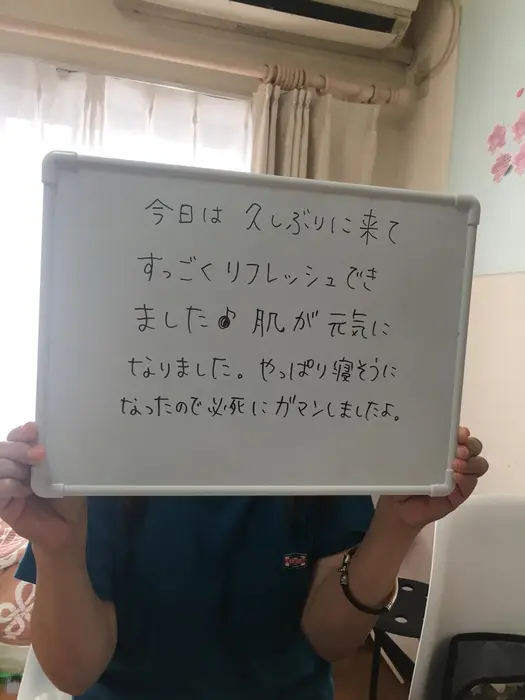 今日は 久しぶりに来て
すっごくリフレッシュでき
ました♪ 肌が 元気に
なりました。やっぱり寝そうに
なったので必死にガマンしましたよ。